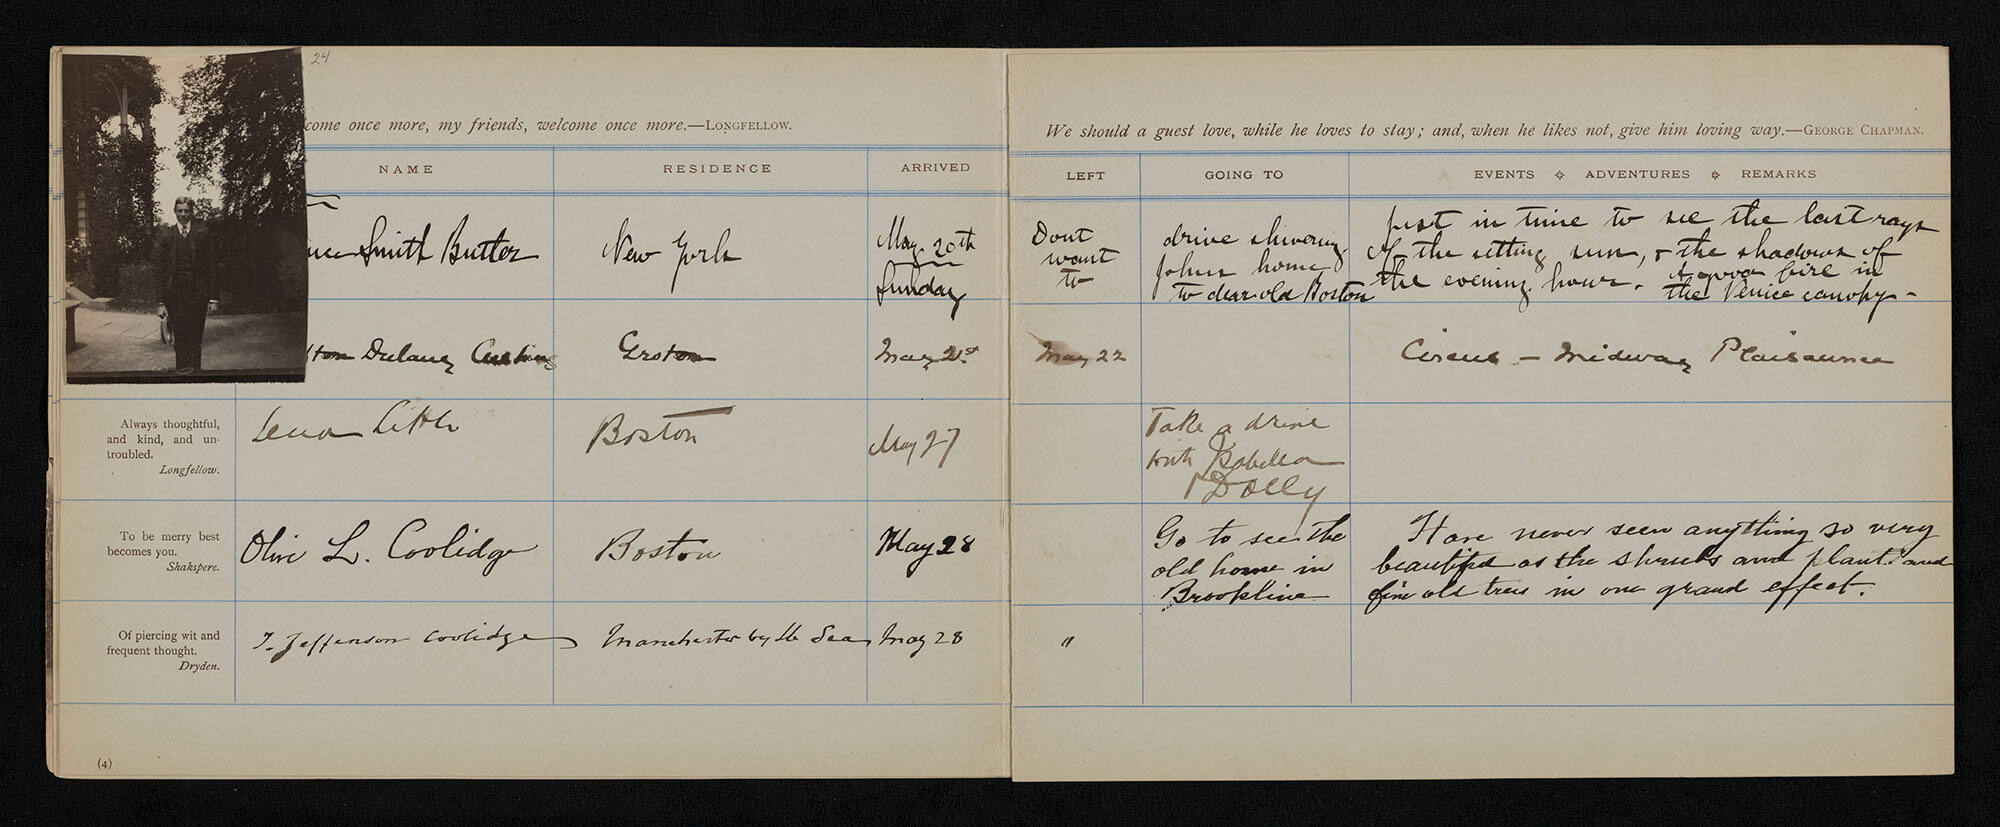 24
come once more, my friends, welcome once more.—LONGFELLOW.
NAME RESIDENCE ARRIVED
Smith Butler New York May 20th
Sunday
Dulany Cushing Groton May 21st
Always thoughtful,
and kind, and un-
troubled.
Longfellow.
Lena Little Boston May 27
To be merry best
becomes you.
Shakspere.
Olive L. Coolidge Boston May 28
Of piercing wit and
frequent thought.
Dryden.
T. Jefferson Coolidge Manchester by the Sea May 28
(4)
We should a guest love, while he loves to stay; and, when he likes not, give him loving way.—GEORGE CHAPMAN.
LEFT GOING TO EVENTS ❖ ADVENTURES ❖ REMARKS
Dont
want
to
drive shivering
home
to dear old Boston
Just in time to see the last rays
of the setting sun, & the shadows of
the evening hour. A good fire in
the Venice canopy -
May 22 Circus - Midway Plaisance
Take a drive
with Isabella
Dolly
Go to see the
old home in
Brookline
Have never seen anything so very
beautiful as the shrubs and plants and
fine old trees in one grand effect.
"